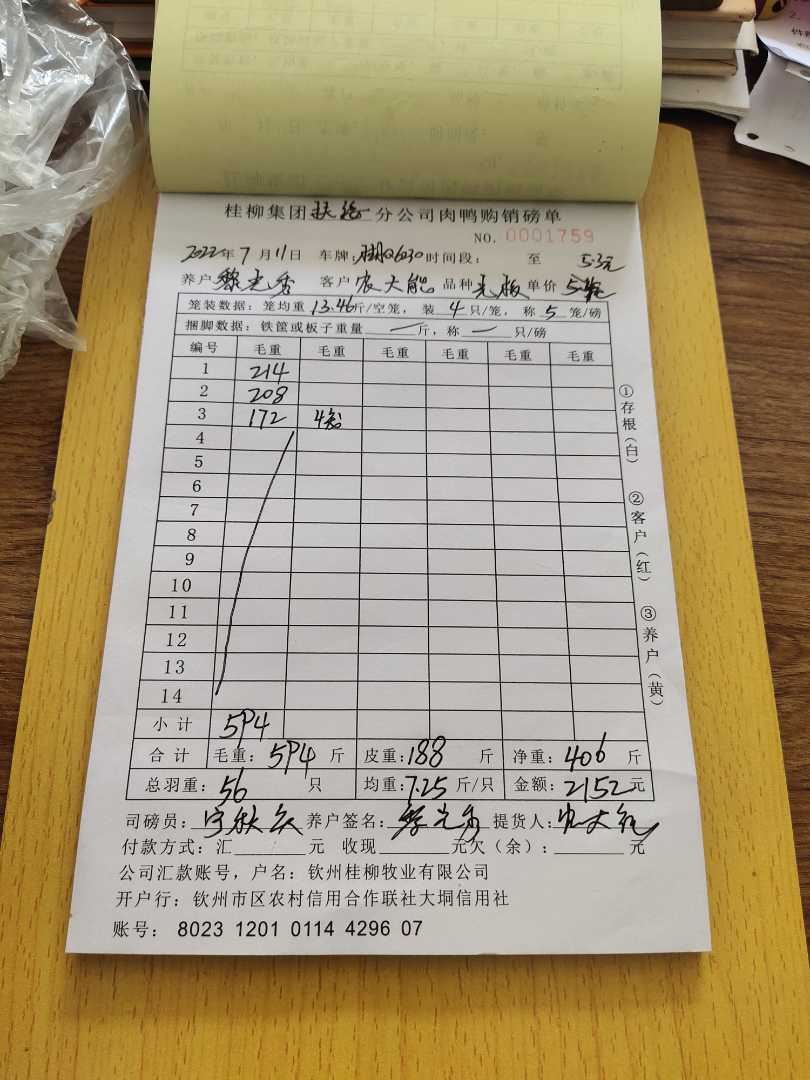 桂柳集团分公司肉鸭购销磅单
NO. 0001759
2022年7月11日 车牌: 时间段: 至 5.3元
养户 黎光秀 客户 农大能 品种 单价
笼装数据: 笼均重 13.46斤/空笼, 装 4 只/笼, 称 5 笼/磅
捆脚数据: 铁筐或板子重量 — 斤, 称 — 只/磅
编号 毛重 毛重 毛重 毛重 毛重 毛重
1 214
2 208
3 172 4笼
4
5
6
7
8
9
10
11
12
13
14
小计 594
合计 毛重: 594 斤 皮重: 188 斤 净重: 406 斤
总羽重: 56 只 均重: 7.25 斤/只 金额: 2152 元
司磅员: 养户签名: 黎光秀 提货人: 农大能
付款方式: 汇 元 收现 元欠(余): 元
公司汇款账号, 户名: 钦州桂柳牧业有限公司
开户行: 钦州市区农村信用合作联社大垌信用社
账号: 8023 1201 0114 4296 07
①存根(白)
②客户(红)
③养户(黄)